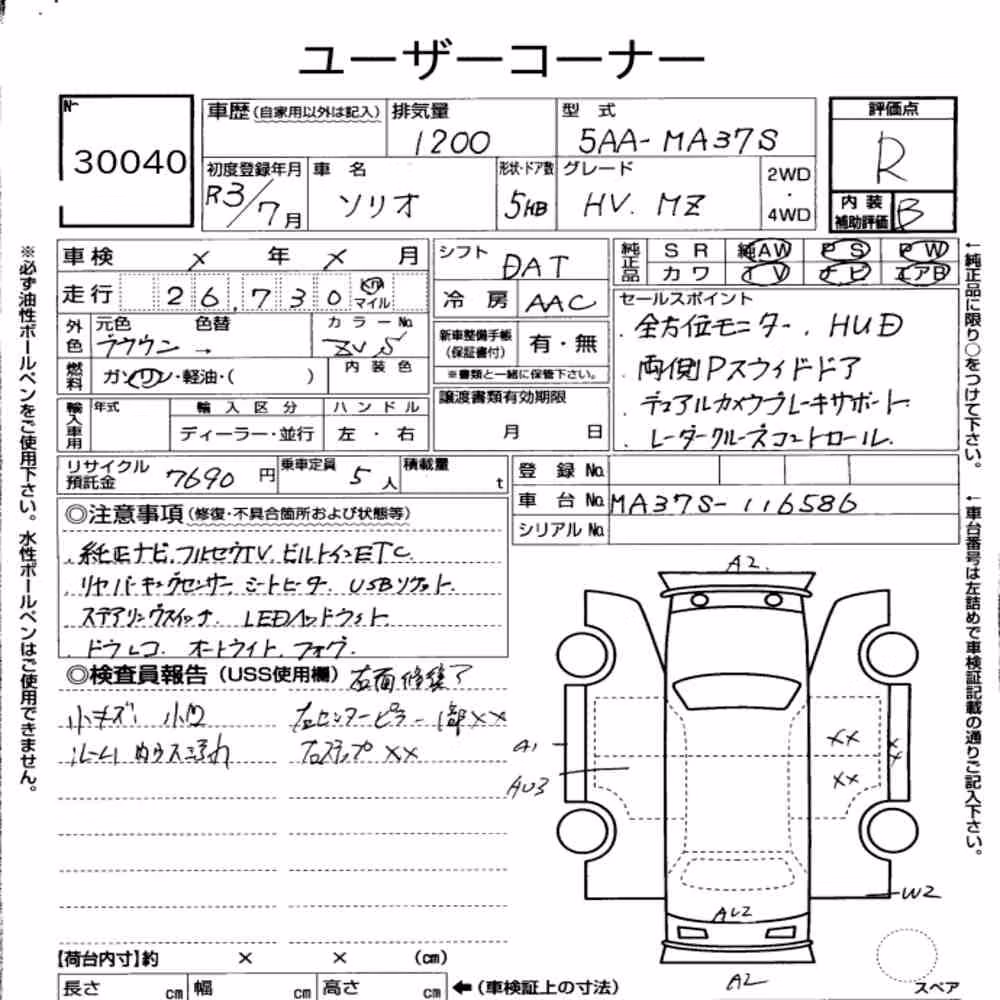 ユーザーコーナー
No.
30040
車歴(自家用以外は記入)
排気量
1200
型 式
5AA-MA37S
評価点
R
内装補助評価
B
初度登録年月
R3/7月
車 名
ソリオ
形状・ドア数
5HB
グレード
HV. MZ
2WD
・
4WD
車検 × 年 × 月
走行 26,730 Km マイル
外色 元色 色替
カラーNo.
ZVS
燃料 ガソリン・軽油・( )
内装色
輸入車用 年式 輸入区分 ハンドル
ディーラー・並行 左・右
シフト
DAT
冷房 AAC
新車整備手帳(保証書付) 有・無
※書類と一緒に保管下さい。
譲渡書類有効期限
月 日
純正品 SR 純AW PS PW
カワ TV ナビ エアB
セールスポイント
・全方位モニター. HUD
・両側Pスライドドア
・デュアルカメラブレーキサポート
・レーダークルーズコントロール.
リサイクル預託金 7690円
乗車定員 5人
積載量 t
登録No.
車台No. MA37S-116586
シリアルNo.
◎注意事項(修復・不具合箇所および状態等)
・純正ナビ.フルセグTV.ビルトインETC
・リヤパーキングセンサー. シートヒーター. USBソケット.
・ステアリングスイッチ. LEDヘッドライト
・ドラレコ. オートライト. フォグ.
◎検査員報告(USS使用欄) 右面修復了
小キズ 小凹
右センターピラー部××
右ステップ××
A2
A1
AU3
××
××
××
W2
AU2
A2
【荷台内寸】約 × × (cm)
長さ cm 幅 cm 高さ cm
←(車検証上の寸法)
スペア
※必ず油性ボールペンをご使用下さい。水性ボールペンはご使用できません。
←純正品に限り○をつけて下さい。
←車台番号は左詰めで車検証記載の通りご記入下さい。